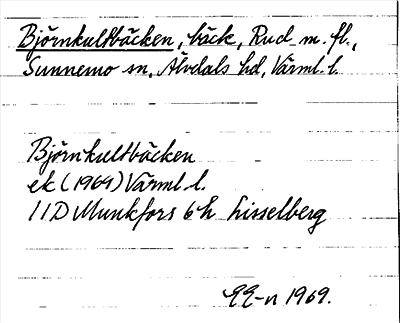 Björnkultbäcken, bäck, Rud m. fl.,
Sunnemo sn, Älvdals hd, Värml. l.
Björnkultbäcken
ek (1969) Värml. l.
11D Munkfors 6h Lisselberg
1969.